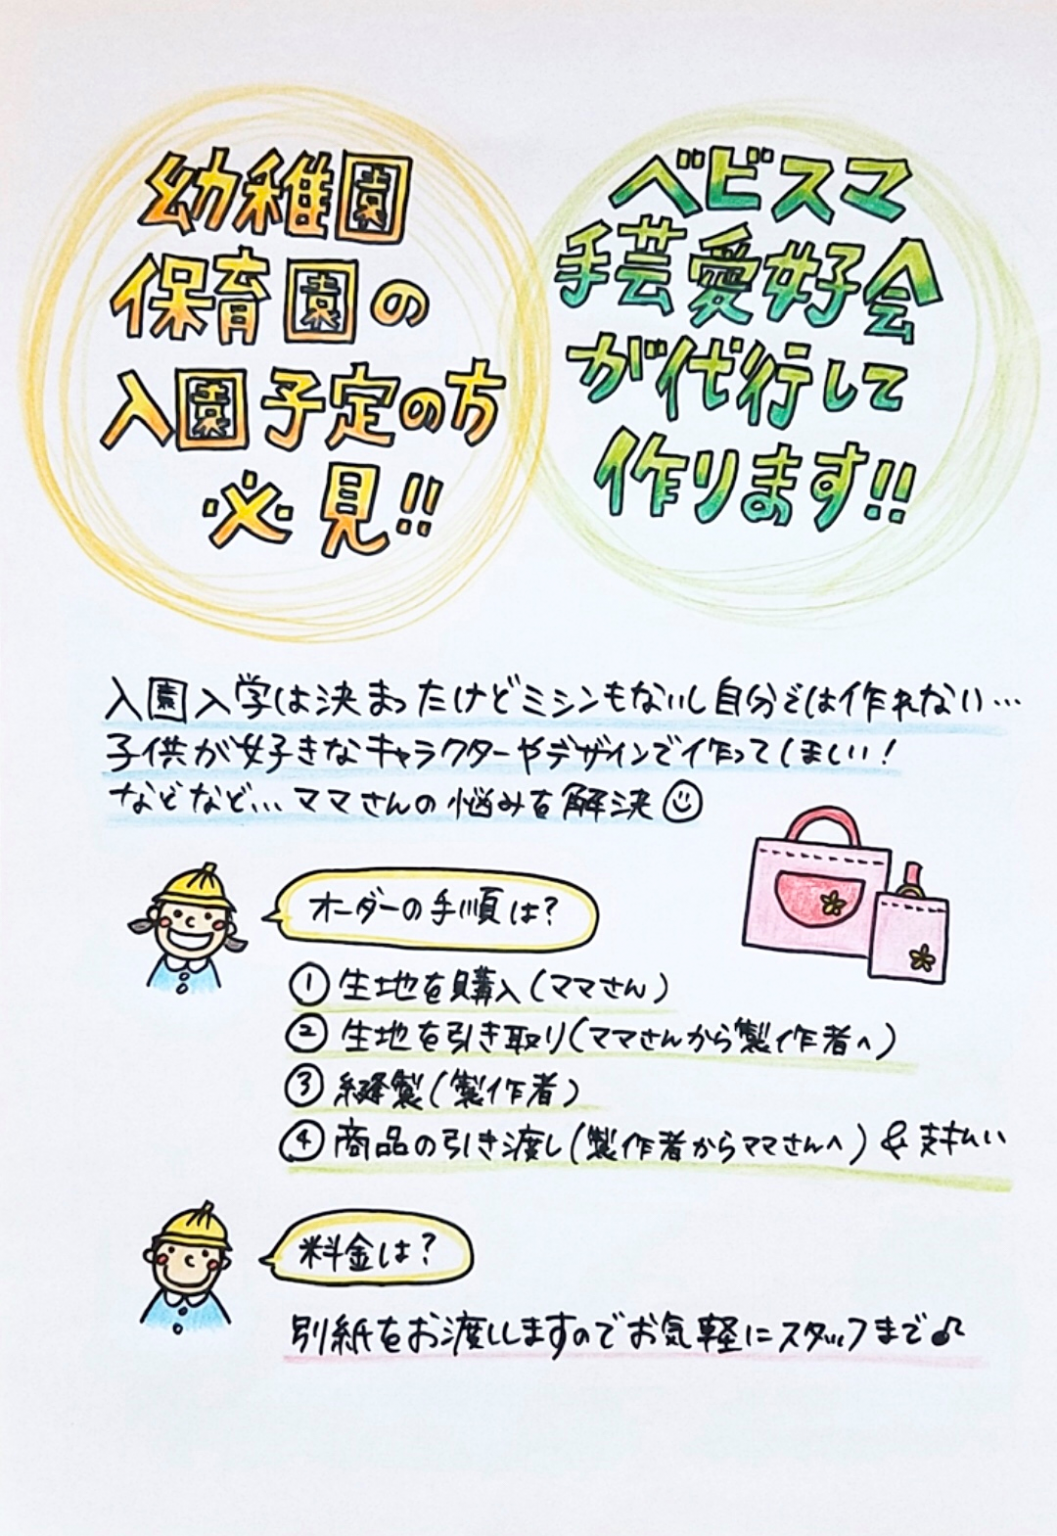 幼稚園
保育園の
入園予定の方
必見!!
ベビスマ
手芸愛好会
が代行して
作ります!!
入園入学は決まったけどミシンもないし自分では作れない…
子供が好きなキャラクターやデザインで作ってほしい!
などなど…ママさんの悩みを解決
オーダーの手順は?
① 生地を購入(ママさん)
② 生地を引き取り(ママさんから製作者へ)
③ 縫製(製作者)
④ 商品の引き渡し(製作者からママさんへ)&支払い
料金は?
別紙をお渡ししますのでお気軽にスタッフまで♪